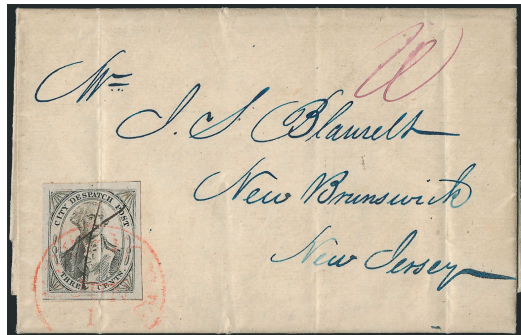 Mr.
J. S. Blauvelt
New Brunswick
New Jersey
CITY DESPATCH POST
THREE CENTS